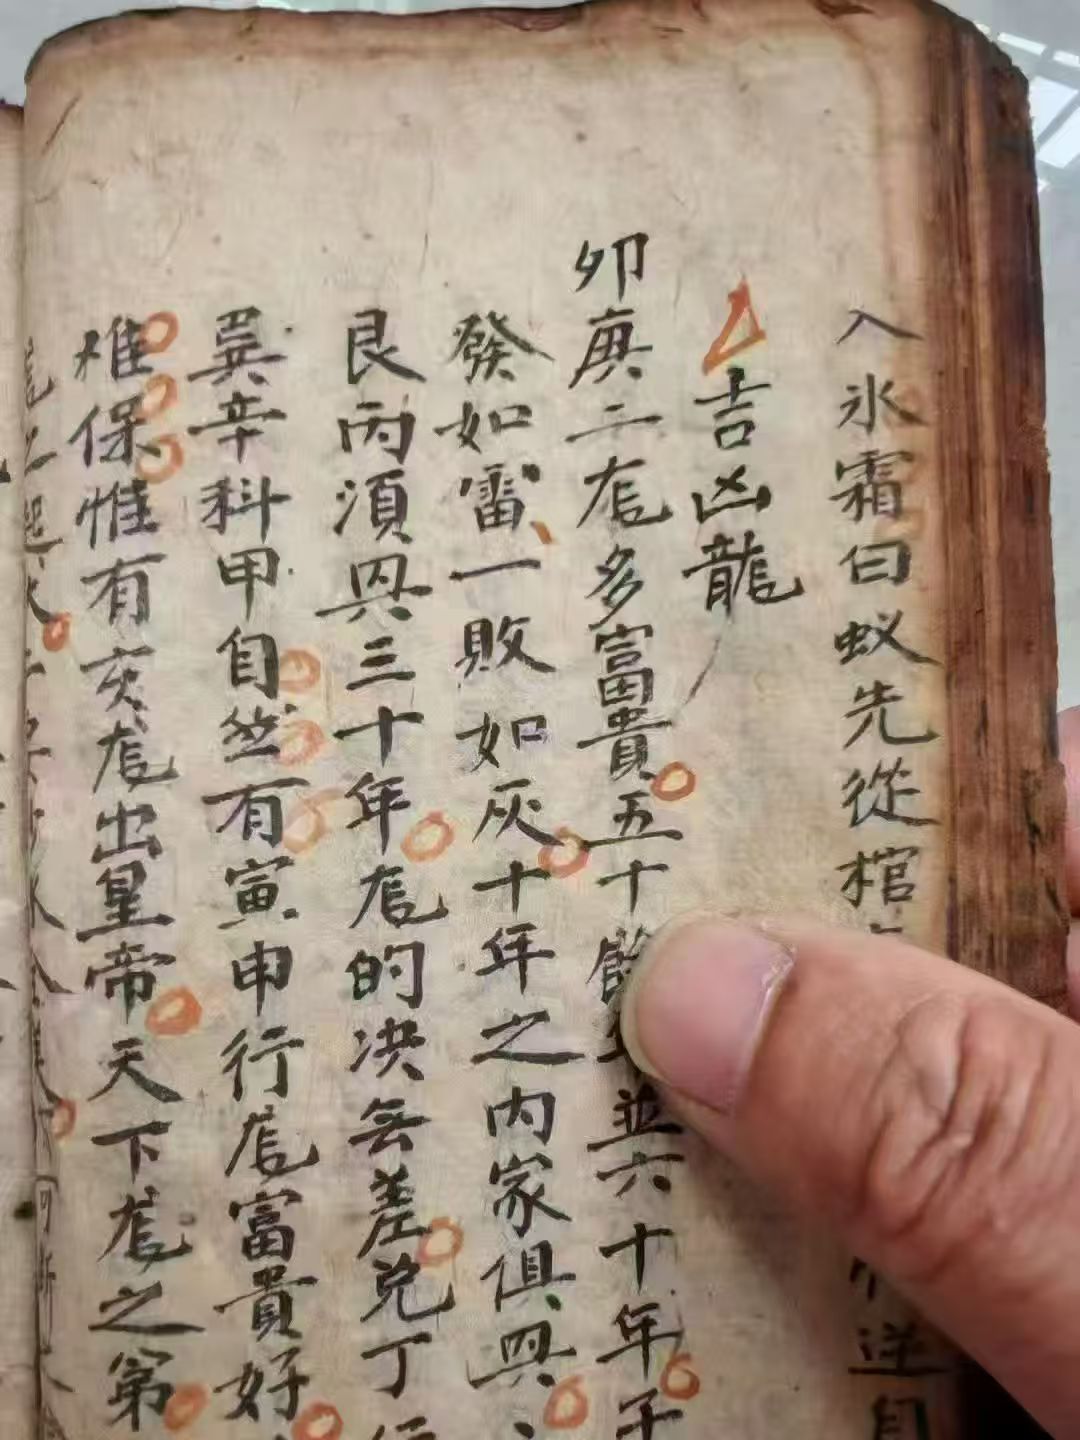 入氷霜曰蚁先從棺
逆自
吉凶龍
卯庚二龙多富貴五十餘並六十年
發如雷一敗如灰十年之内家俱興
艮丙須興三十年龙的决无差兑丁
巽辛科甲自然有寅申行龙富貴好
难保惟有亥龙出皇帝天下龙之第